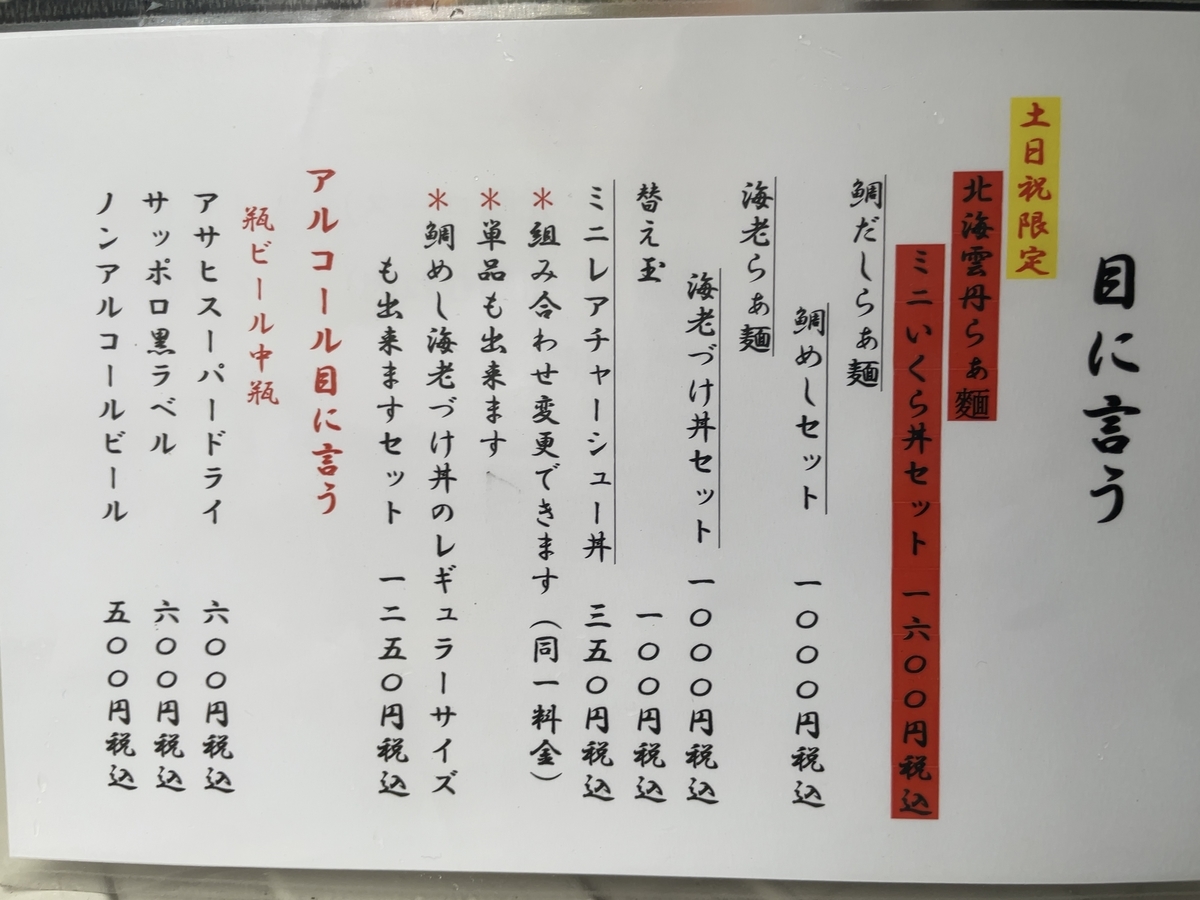 目に言う
土日祝限定
北海雲丹らぁ麵
ミニいくら丼セット 一六〇〇円税込
鯛だしらぁ麺
鯛めしセット 一〇〇〇円税込
海老らぁ麺
海老づけ丼セット 一〇〇〇円税込
替え玉 一〇〇円税込
ミニレアチャーシュー丼 三五〇円税込
＊組み合わせ変更できます（同一料金）
＊単品も出来ます
＊鯛めし海老づけ丼のレギュラーサイズ
も出来ますセット 一二五〇円税込
アルコール目に言う
瓶ビール中瓶
アサヒスーパードライ 六〇〇円税込
サッポロ黒ラベル 六〇〇円税込
ノンアルコールビール 五〇〇円税込